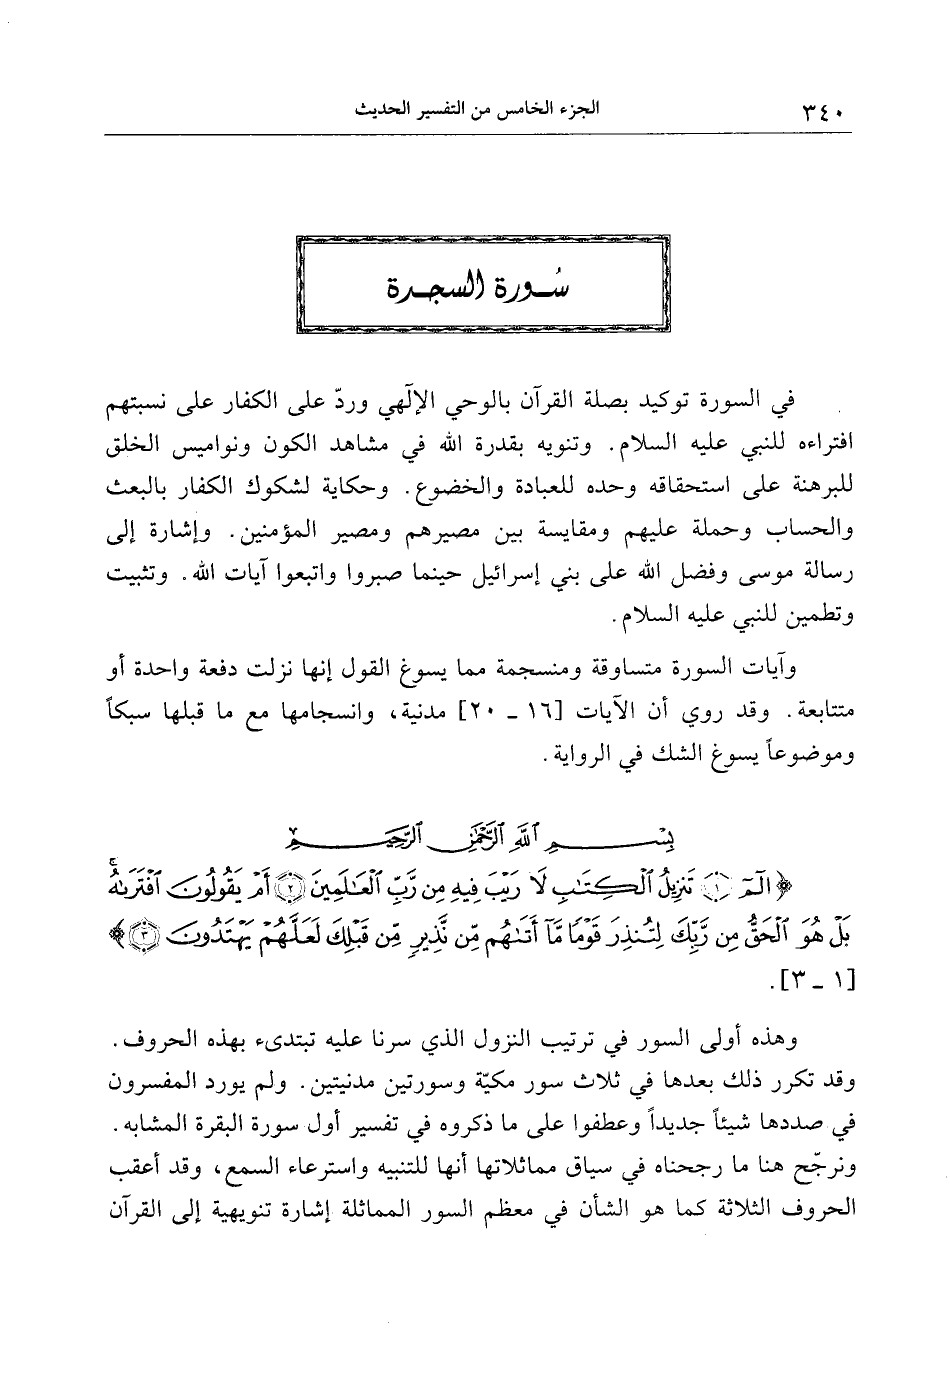 ٣٤٠ الجزء الخامس من التفسير الحديث
سُورة السجدة
في السورة توكيد بصلة القرآن بالوحي الإلٓهي وردّ على الكفار على نسبتهم
افتراءه للنبي عليه السلام. وتنويه بقدرة الله في مشاهد الكون ونواميس الخلق
للبرهنة على استحقاقه وحده للعبادة والخضوع. وحكاية لشكوك الكفار بالبعث
والحساب وحملة عليهم ومقايسة بين مصيرهم ومصير المؤمنين. وإشارة إلى
رسالة موسى وفضل الله على بني إسرائيل حينما صبروا واتبعوا آيات الله. وتثبيت
وتطمين للنبي عليه السلام.
وآيات السورة متساوقة ومنسجمة مما يسوغ القول إنها نزلت دفعة واحدة أو
متتابعة. وقد روي أن الآيات [١٦ ـ ٢٠] مدنية، وانسجامها مع ما قبلها سبكاً
وموضوعاً يسوغ الشك في الرواية.
بِسْمِ ٱللَّهِ ٱلرَّحْمَٰنِ ٱلرَّحِيمِ
﴿ الٓمٓ ۝١ تَنزِيلُ ٱلْكِتَٰبِ لَا رَيْبَ فِيهِ مِن رَّبِّ ٱلْعَٰلَمِينَ ۝٢ أَمْ يَقُولُونَ ٱفْتَرَىٰهُ ۚ
بَلْ هُوَ ٱلْحَقُّ مِن رَّبِّكَ لِتُنذِرَ قَوْمًا مَّآ أَتَىٰهُم مِّن نَّذِيرٍ مِّن قَبْلِكَ لَعَلَّهُمْ يَهْتَدُونَ ۝٣ ﴾
[١ ـ ٣].
وهذه أولى السور في ترتيب النزول الذي سرنا عليه تبتدىء بهذه الحروف.
وقد تكرر ذلك بعدها في ثلاث سور مكيّة وسورتين مدنيتين. ولم يورد المفسرون
في صددها شيئاً جديداً وعطفوا على ما ذكروه في تفسير أول سورة البقرة المشابه.
ونرجّح هنا ما رجحناه في سياق مماثلاتها أنها للتنبيه واسترعاء السمع، وقد أعقب
الحروف الثلاثة كما هو الشأن في معظم السور المماثلة إشارة تنويهية إلى القرآن